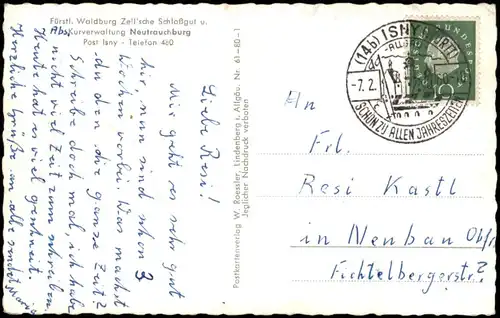 Fürstl. Waldburg Zeil'sche Schloßgut u.
Abs. Kurverwaltung Neutrauchburg
Post Isny - Telefon 480
Liebe Resi!
Mir geht es sehr gut
hir sind schon 3
Wochen vorbei. Was machst
du den die ganze Zeit?
Schreibe doch mal, ich habe
nicht viel Zeit zum schreiben.
Heute hat es viel geschneit.
Herzlich grüße an alle sendet
Postkartenverlag W. Roessler, Lindenberg i. Allgäu. Nr. 61-80-1
Jeglicher Nachdruck verboten
(14b) ISNY (ALLGÄU)
-7.2.
SCHÖN ZU ALLEN JAHRESZEITEN
10
An
Frl.
Resi Kastl
in Neubau Obpf.
Fichtelbergerstr.?